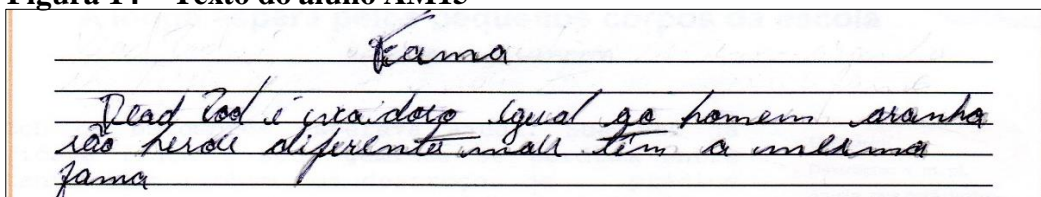 Figura 14 – Texto do aluno AM15
Fama
Dead Pool é igual ao homem aranha
são herois diferente mais tem a mesma
fama